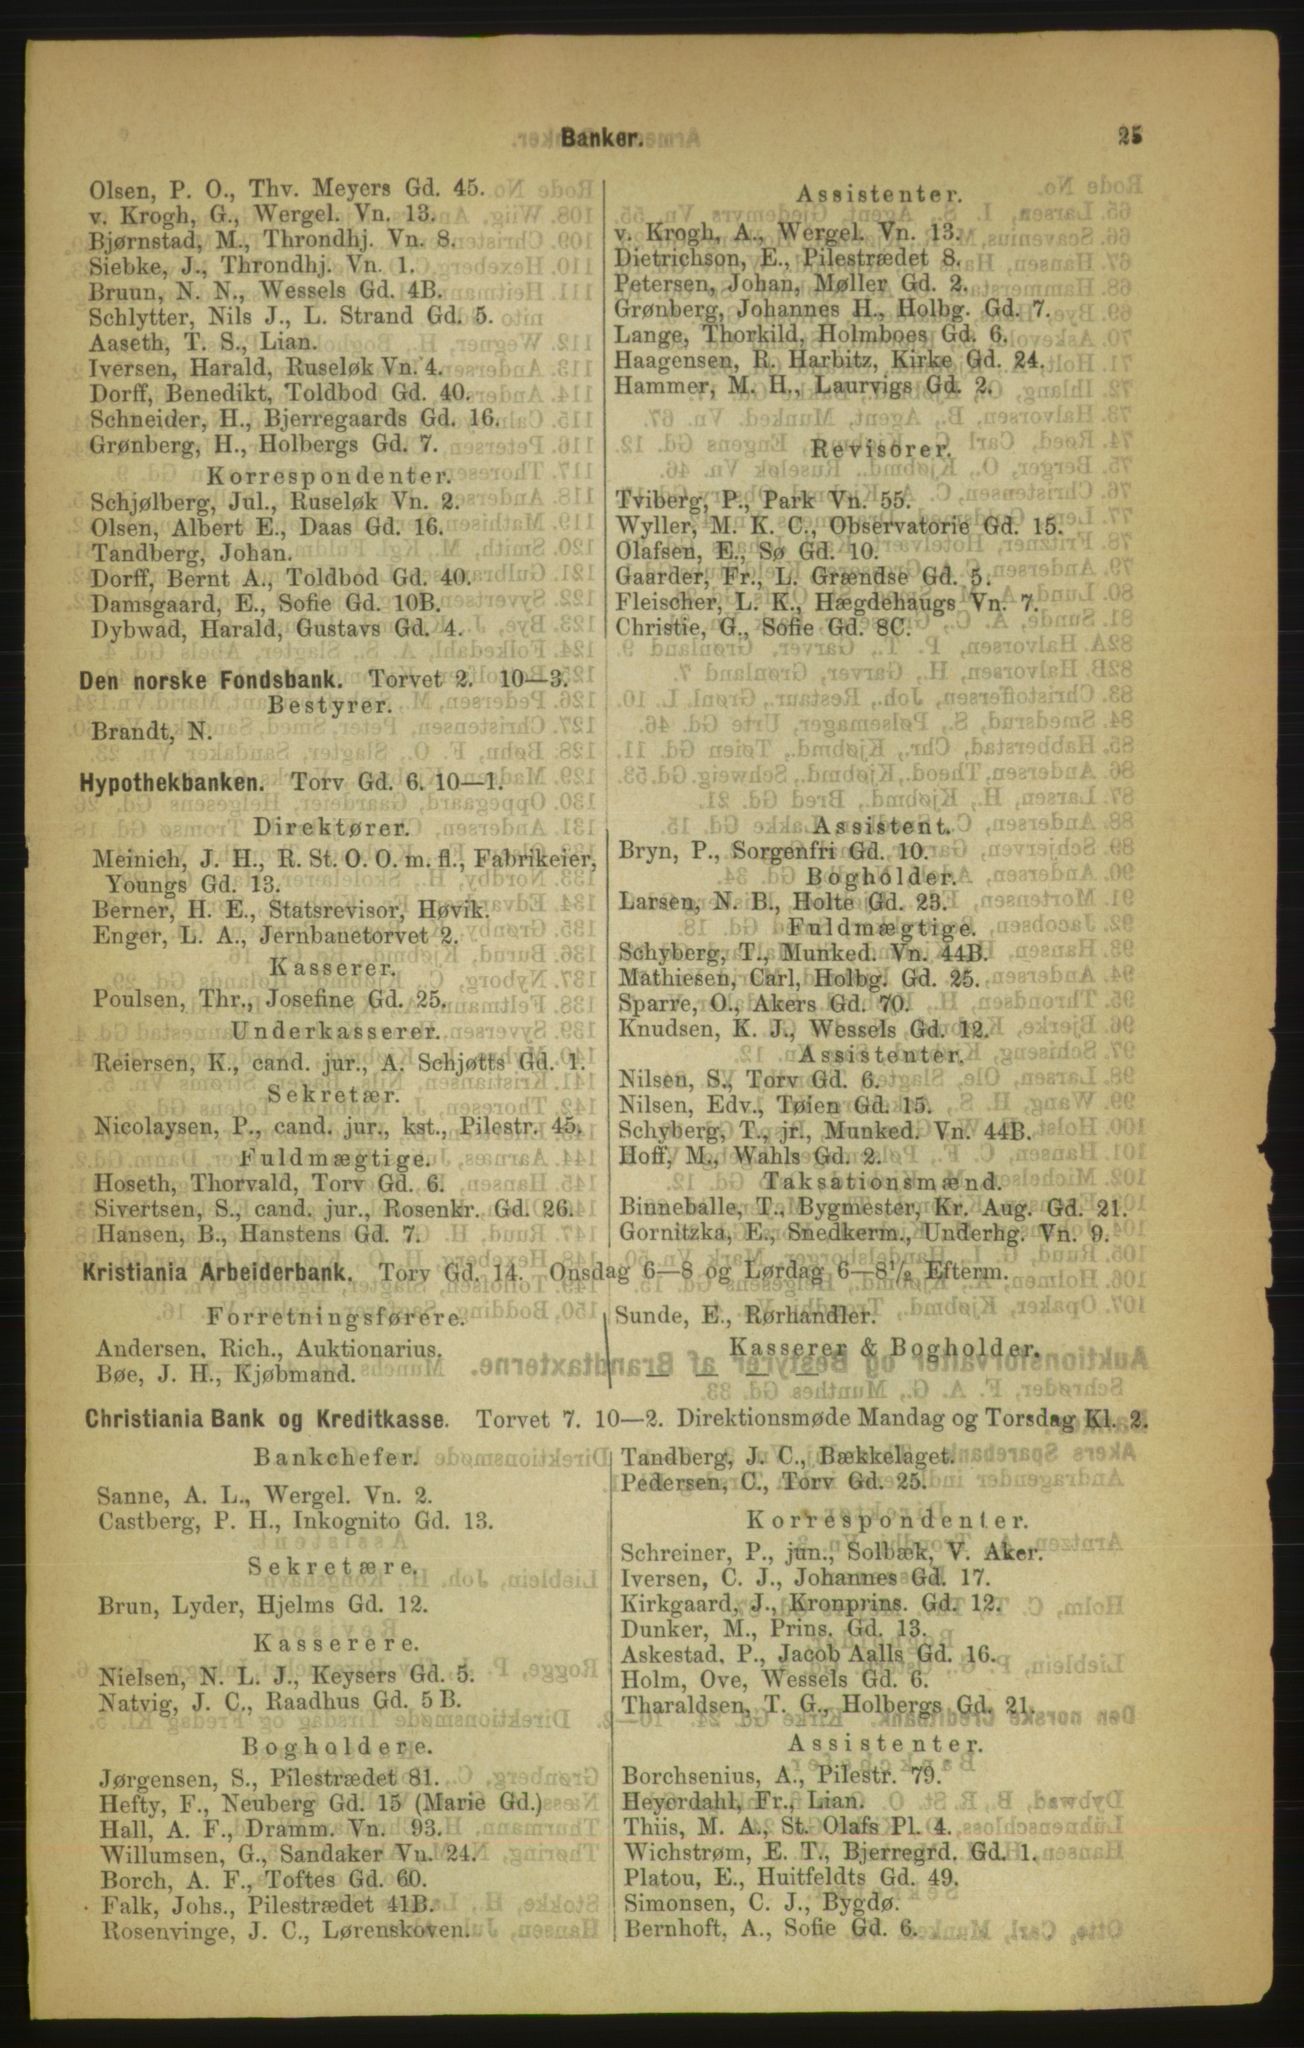 Banker. 25
Olsen, P. O., Thv. Meyers Gd. 45.
v. Krogh, G., Wergel. Vn. 13.
Bjørnstad, M., Throndhj. Vn. 8.
Siebke, J., Throndhj. Vn. 1.
Bruun, N. N., Wessels Gd. 4B.
Schlytter, Nils J., L. Strand Gd. 5.
Aaseth, T. S., Lian.
Iversen, Harald, Ruseløk Vn. 4.
Dorff, Benedikt, Toldbod Gd. 40.
Schneider, H., Bjerregaards Gd. 16.
Grønberg, H., Holbergs Gd. 7.
Korrespondenter.
Schjølberg, Jul., Ruseløk Vn. 2.
Olsen, Albert E., Daas Gd. 16.
Tandberg, Johan.
Dorff, Bernt A., Toldbod Gd. 40.
Damsgaard, E., Sofie Gd. 10B.
Dybwad, Harald, Gustavs Gd. 4.
Assistenter.
v. Krogh, A., Wergel. Vn. 13.
Dietrichson, E., Pilestrædet 8.
Petersen, Johan, Møller Gd. 2.
Grønberg, Johannes H., Holbg. Gd. 7.
Lange, Thorkild, Holmboes Gd. 6.
Haagensen, R. Harbitz, Kirke Gd. 24.
Hammer, M. H., Laurvigs Gd. 2.
Revisorer.
Tviberg, P., Park Vn. 55.
Wyller, M. K. C., Observatorie Gd. 15.
Olafsen, E., Sø Gd. 10.
Gaarder, Fr., L. Grændse Gd. 5.
Fleischer, L. K., Hægdehaugs Vn. 7.
Christie, G., Sofie Gd. 8C.
Den norske Fondsbank. Torvet 2. 10—3.
Bestyrer.
Brandt, N.
Hypothekbanken. Torv Gd. 6. 10—1.
Direktører.
Meinich, J. H., R. St. O. O. m. fl., Fabrikeier,
Youngs Gd. 13.
Berner, H. E., Statsrevisor, Høvik.
Enger, L. A., Jernbanetorvet 2.
Kasserer.
Poulsen, Thr., Josefine Gd. 25.
Underkasserer.
Reiersen, K., cand. jur., A. Schjøtts Gd. 1.
Sekretær.
Nicolaysen, P., cand. jur., kst., Pilestr. 45.
Fuldmægtige.
Hoseth, Thorvald, Torv Gd. 6.
Sivertsen, S., cand. jur., Rosenkr. Gd. 26.
Hansen, B., Hanstens Gd. 7.
Assistent.
Bryn, P., Sorgenfri Gd. 10.
Bogholder.
Larsen, N. B., Holte Gd. 23.
Fuldmægtige.
Schyberg, T., Munked. Vn. 44B.
Mathiesen, Carl, Holbg. Gd. 25.
Sparre, O., Akers Gd. 70.
Knudsen, K. J., Wessels Gd. 12.
Assistenter.
Nilsen, S., Torv Gd. 6.
Nilsen, Edv., Tøien Gd. 15.
Schyberg, T., jr., Munked. Vn. 44B.
Hoff, M., Wahls Gd. 2.
Taksationsmænd.
Binneballe, T., Bygmester, Kr. Aug. Gd. 21.
Gornitzka, E., Snedkerm., Underhg. Vn. 9.
Kristiania Arbeiderbank. Torv Gd. 14. Onsdag 6—8 og Lørdag 6—8½ Efterm.
Forretningsførere.
Andersen, Rich., Auktionarius.
Bøe, J. H., Kjøbmand.
Sunde, E., Rørhandler.
Kasserer & Bogholder.
— — — —
Christiania Bank og Kreditkasse. Torvet 7. 10—2. Direktionsmøde Mandag og Torsdag Kl. 2.
Bankchefer.
Sanne, A. L., Wergel. Vn. 2.
Castberg, P. H., Inkognito Gd. 13.
Sekretære.
Brun, Lyder, Hjelms Gd. 12.
Kasserere.
Nielsen, N. L. J., Keysers Gd. 5.
Natvig, J. C., Raadhus Gd. 5 B.
Bogholdere.
Jørgensen, S., Pilestrædet 81.
Hefty, F., Neuberg Gd. 15 (Marie Gd.)
Hall, A. F., Dramm. Vn. 93.
Willumsen, G., Sandaker Vn. 24.
Borch, A. F., Toftes Gd. 60.
Falk, Johs., Pilestrædet 41B.
Rosenvinge, J. C., Lørenskoven.
Tandberg, J. C., Bækkelaget.
Pedersen, C., Torv Gd. 25.
Korrespondenter.
Schreiner, P., jun., Solbæk, V. Aker.
Iversen, C. J., Johannes Gd. 17.
Kirkgaard, J., Kronprins. Gd. 12.
Dunker, M., Prins. Gd. 13.
Askestad, P., Jacob Aalls Gd. 16.
Holm, Ove, Wessels Gd. 6.
Tharaldsen, T. G., Holbergs Gd. 21.
Assistenter.
Borchsenius, A., Pilestr. 79.
Heyerdahl, Fr., Lian.
Thiis, M. A., St. Olafs Pl. 4.
Wichstrøm, E. T., Bjerregrd. Gd. 1.
Platou, E., Huitfeldts Gd. 49.
Simonsen, C. J., Bygdø.
Bernhoft, A., Sofie Gd. 6.